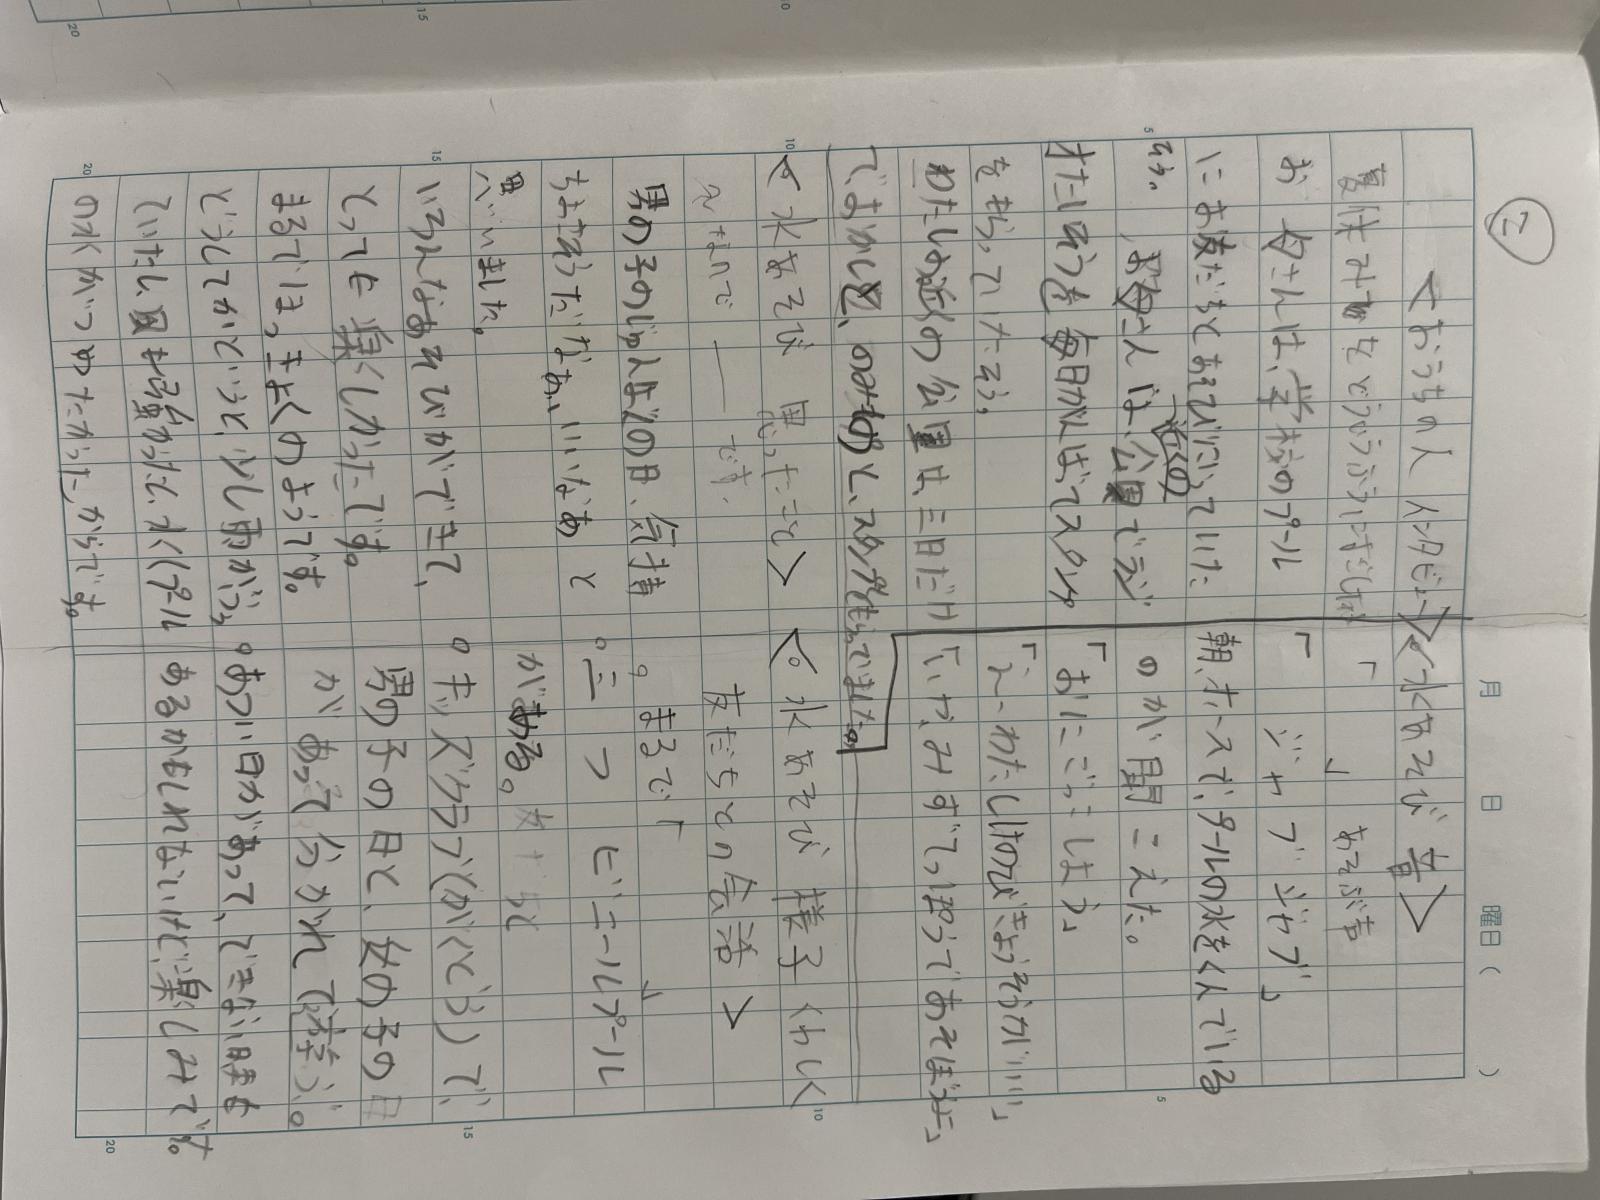 ②
月 日 曜日( )
<おうちの人インタビュー>
夏休みをどうゆうふうにすごした
お母さんは、学校のプール
にお友だちとあそびにいっていた
そう。お母さんは、近くの公園でラジ
オたいそうを毎日がんばってスタンプ
をもらっていたそう。
わたしの近くの公園は、三日だけ
でおかしと、のみものと、スタンプをもらっていました。
<水あそび 思ったこと>
えなので――です。
男の子のじゅんばんの日、気持
ちよさそうだなあ、いいなあと
思いました。
いろんなあそびができて、
とっても楽しかったです。
まるでほっきょくのようです。
どうしてかというと、少し雨がふっ
ていたし、風も強かったし、水(プール
の水)がつめたかったからです。
<水あそび 音>
「 」あそぶ声
「ジャブジャブ」
朝、ホースで、プールの水をくんでいる
のが聞こえた。
「おにごっこしよう」
「え〜わたししはのびきょうそうがいい」
「いや、みずでっぽうであそぼうよ」
<水あそび 様子くわしく
友だちとの会話>
。まるで「 」
。三つビニールプール
がある。
。キッズクラブ(がくどう)で、
男の子の日と、女の子の日
があって分かれて遊ぶ。
。あつい日があって、できない時も
あるかもしれないけど、楽しみです。
5
10
15
20
5
10
15
20